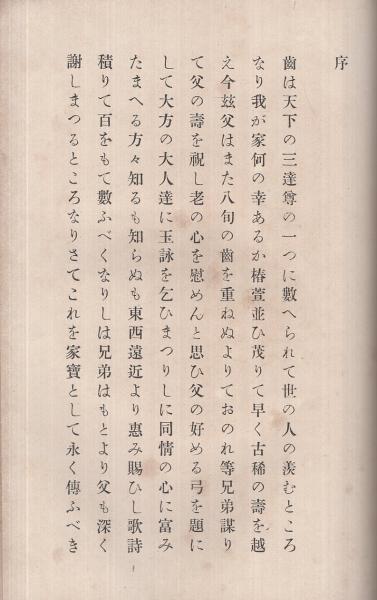 序
齒は天下の三達尊の一つに數へられて世の人の羨むところ
なり我が家何の幸あるか椿萱並ひ茂りて早く古稀の壽を越
え今玆父はまた八旬の齒を重ねぬよりておのれ等兄弟謀り
て父の壽を祝し老の心を慰めんと思ひ父の好める弓を題に
して大方の大人達に玉詠を乞ひまつりしに同情の心に富み
たまへる方々知るも知らぬも東西遠近より惠み賜ひし歌詩
積りて百をもて數ふべくなりしは兄弟はもとより父も深く
謝しまつるところなりさてこれを家寶として永く傳ふべき